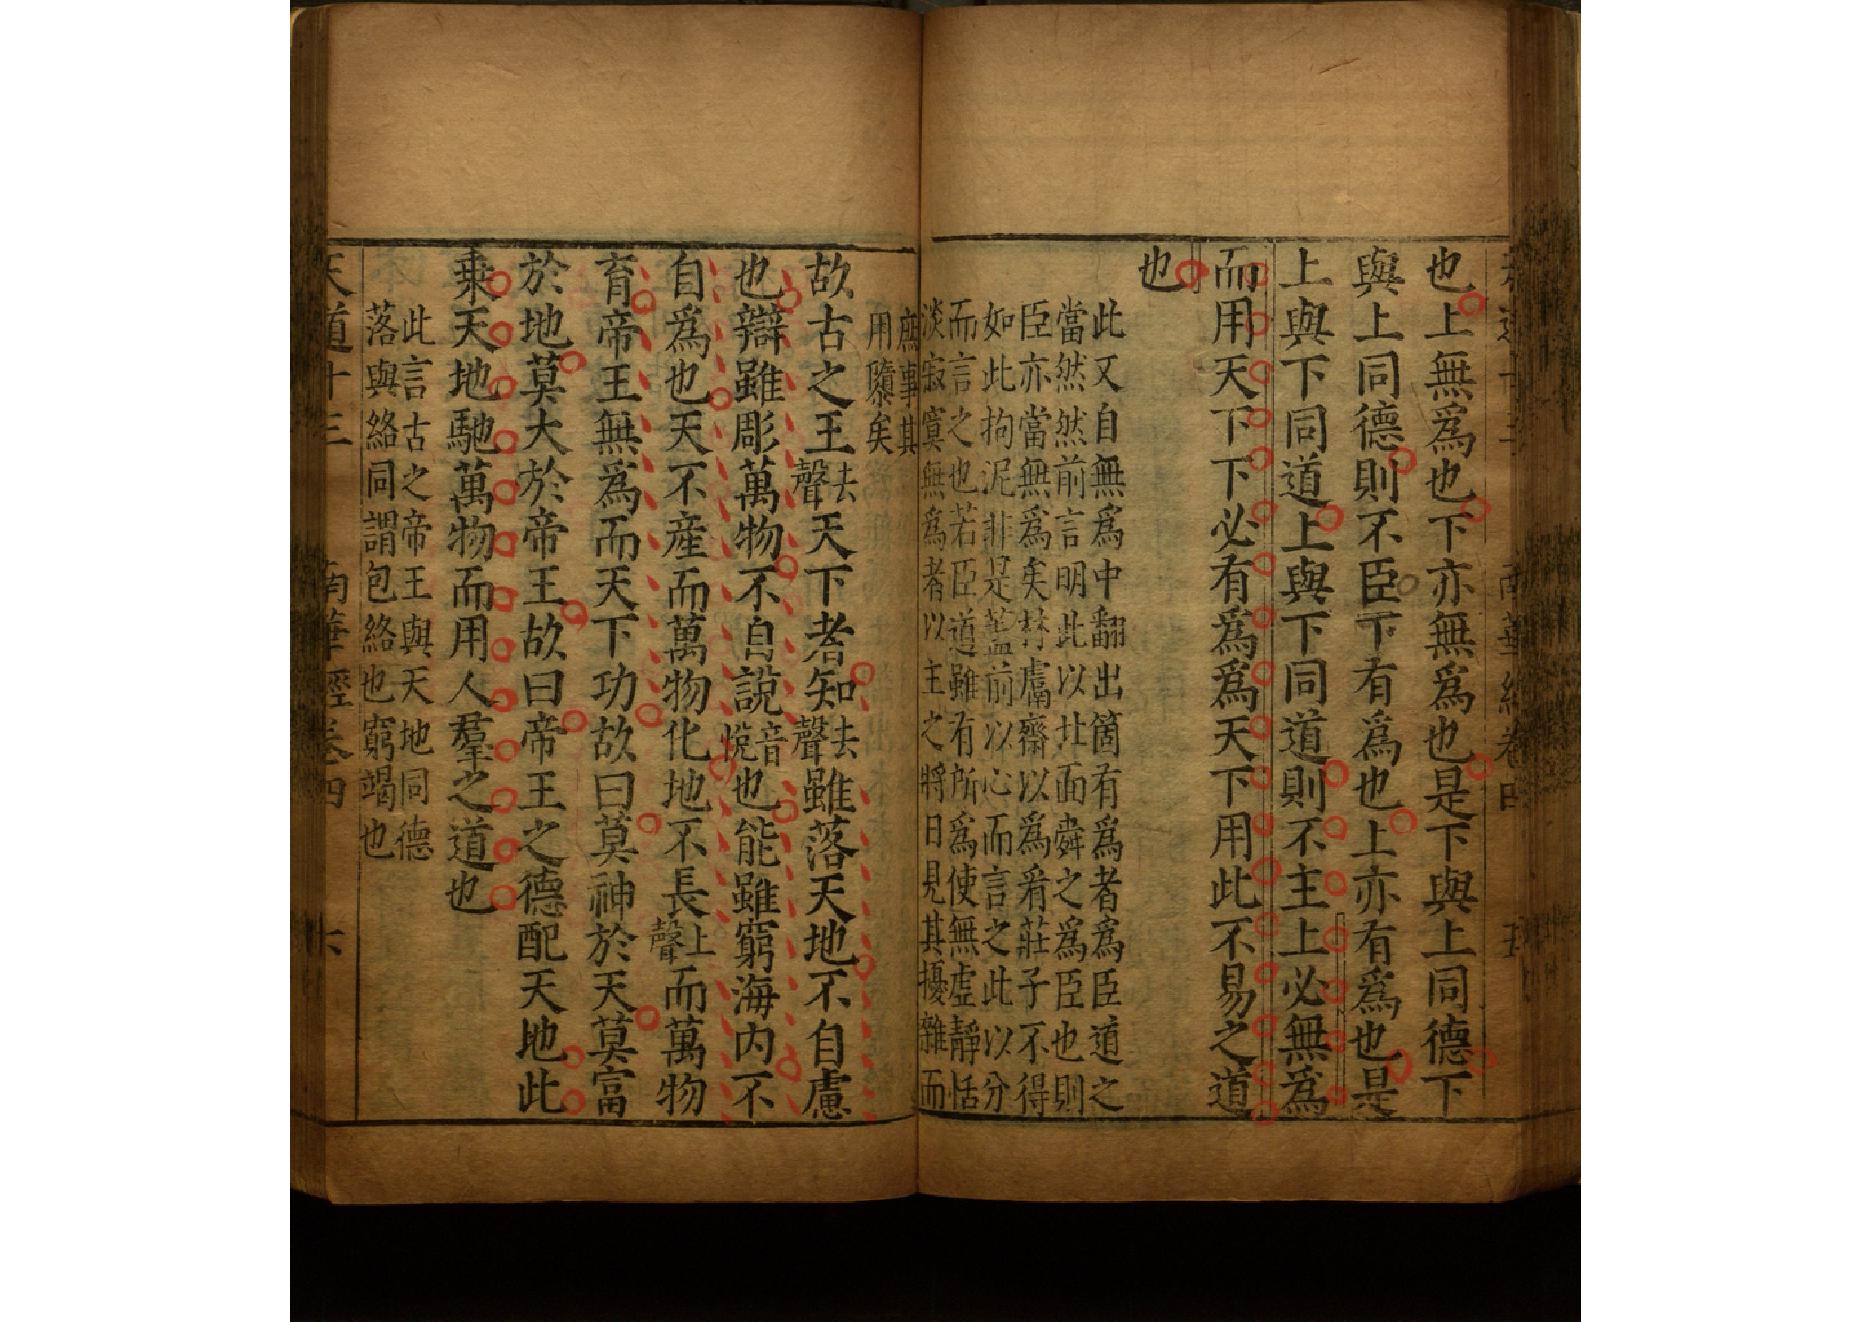 也上無爲也下亦無爲也是下與上同德下
與上同德則不臣下有爲也上亦有爲也是
上與下同道上與下同道則不主上必無爲
而用天下下必有爲爲天下用此不易之道
也
此又自無爲中翻出箇有爲者爲臣道之
當然然前言明此以北面舜之爲臣也則
臣亦當無爲矣林鬳齋以爲看莊子不得
如此拘泥非是蓋前以心而言之此以分
而言之也若臣道雖有所爲使無虛靜恬
淡寂寞無爲者以主之將日見其擾雜而
庶事其
用隳矣
故古之王去聲天下者知去聲雖落天地不自慮
也辯雖彫萬物不自說音悅也能雖窮海内不
自爲也天不産而萬物化地不長上聲而萬物
育帝王無爲而天下功故曰莫神於天莫富
於地莫大於帝王故曰帝王之德配天地此
乘天地馳萬物而用人羣之道也
此言古之帝王與天地同德
落與絡同謂包絡也窮竭也
天道十三 南華經卷四 六